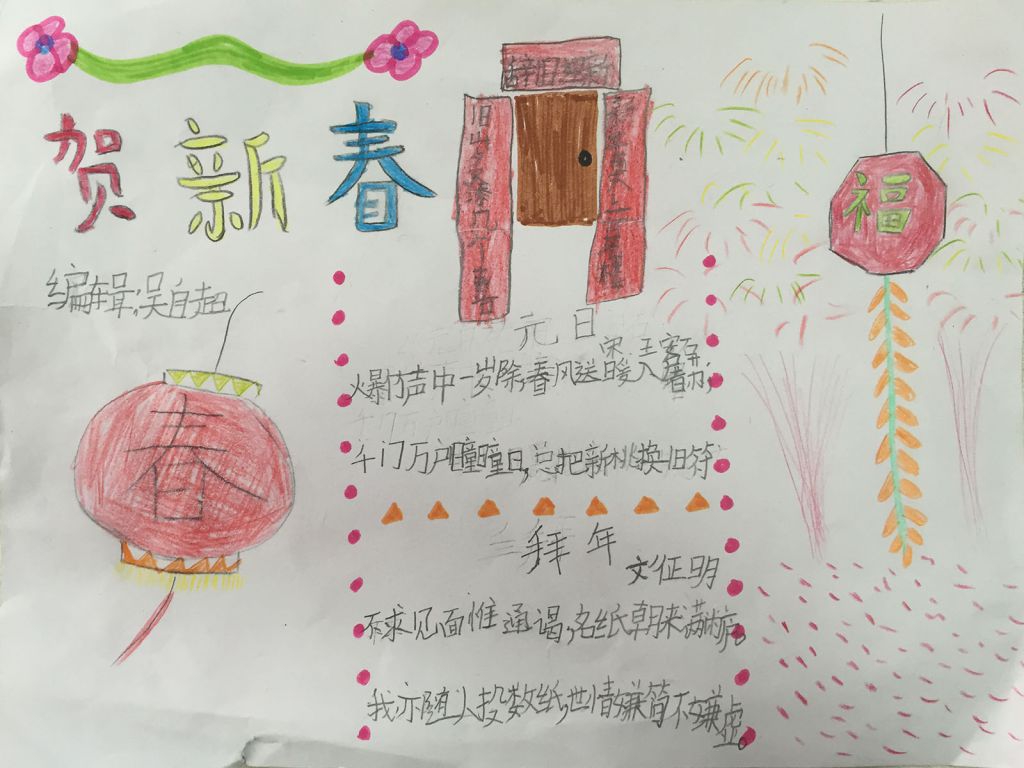 贺新春
辞旧迎新
编辑:吴自超
福
春
元日
宋 王安石
爆竹声中一岁除,春风送暖入屠苏;
千门万户瞳瞳日,总把新桃换旧符
拜年
文征明
不求见面惟通谒,名纸朝来满敝庐。
我亦随人投数纸,世情嫌简不嫌虚。